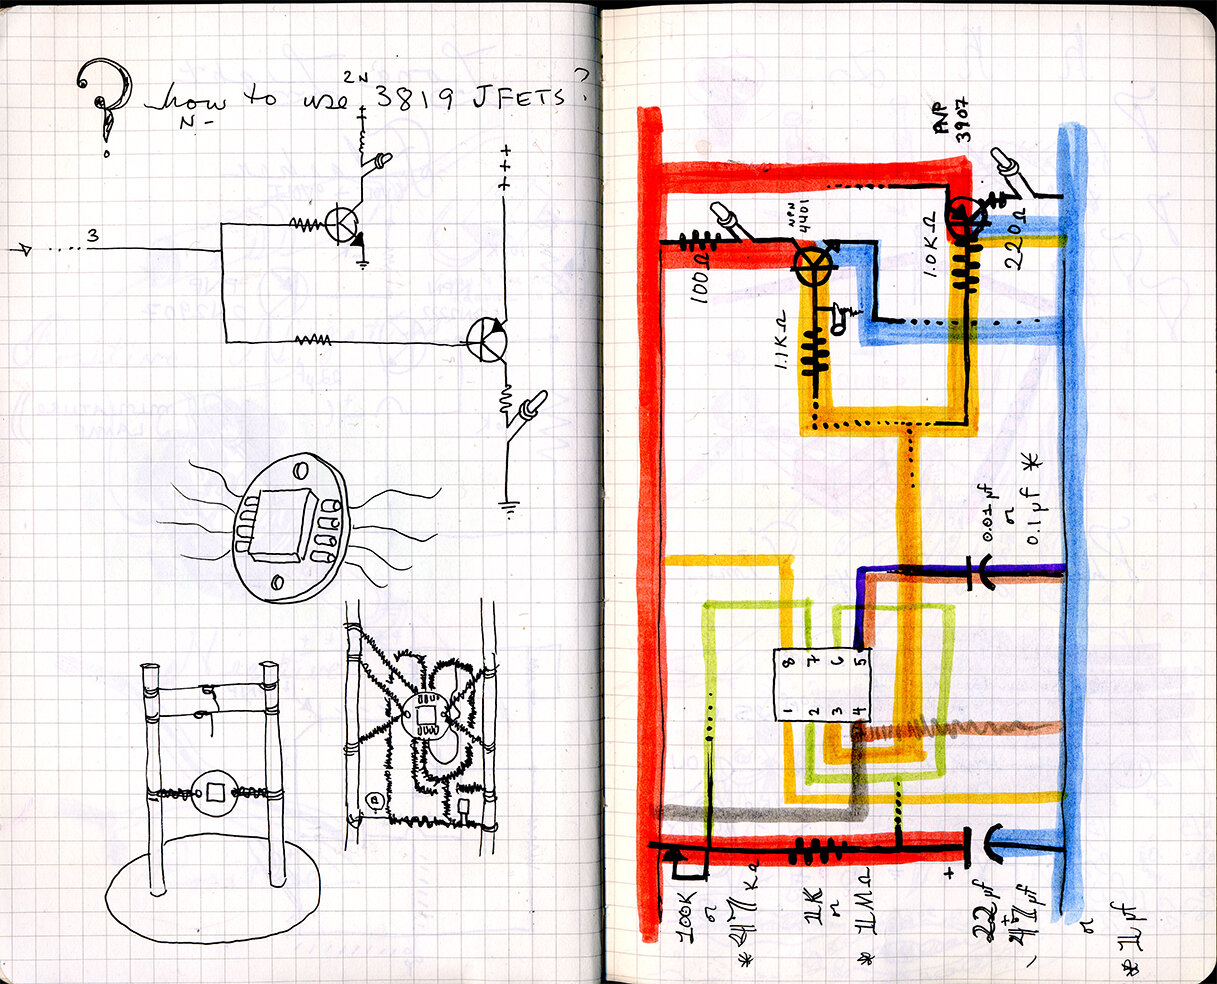 2N
how to use 3819 JFETS?
N-
3
+++
+++
PNP
3907
NPN
4401
100Ω
1.0KΩ
220Ω
1.1KΩ
0.01µf
or
0.1µf *
8 7 6 5
1 2 3 4
+
100K
or
* 47KΩ
1K
or
* 1MΩ
22µf
47µf
or
* 1µf